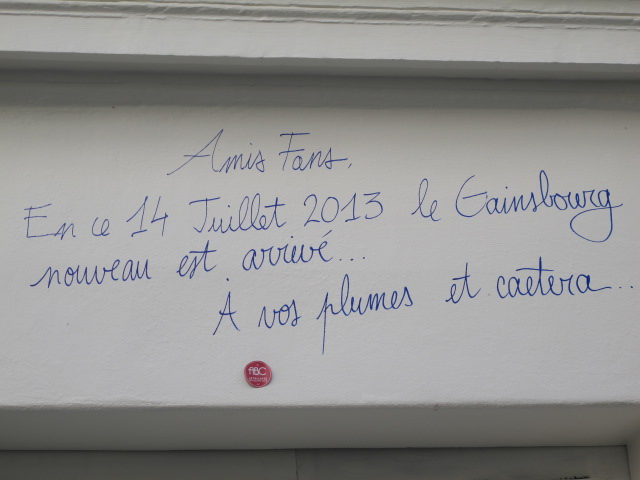 Amis Fans,
En ce 14 Juillet 2013 le Gainsbourg
nouveau est arrivé...
À vos plumes et caetera...
ABC